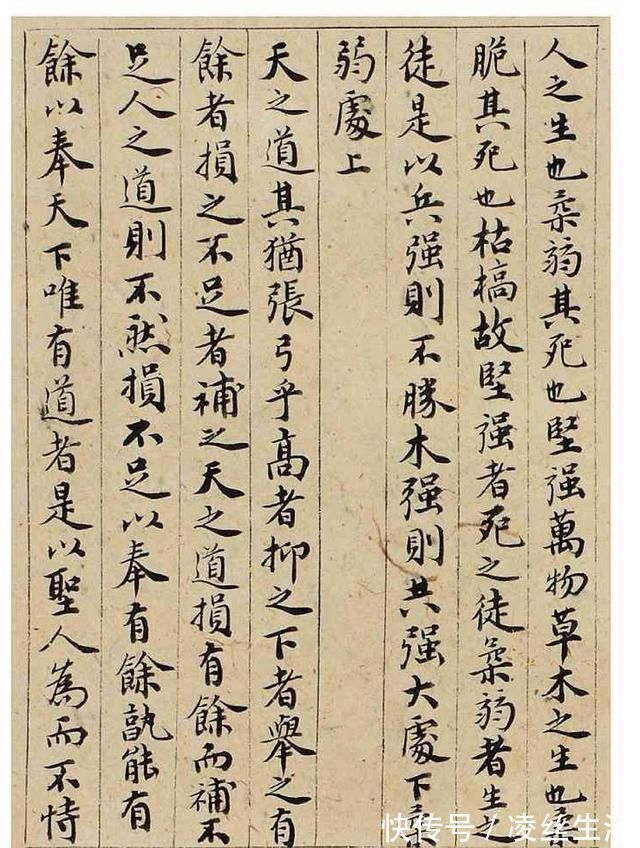 人之生也柔弱其死也堅强萬物草木之生也柔
脆其死也枯槁故堅强者死之徒柔弱者生之
徒是以兵强則不勝木强則共强大處下柔
弱處上
天之道其猶張弓乎高者抑之下者舉之有
餘者損之不足者補之天之道損有餘而補不
足人之道則不然損不足以奉有餘孰能有
餘以奉天下唯有道者是以聖人為而不恃
快传号/凌丝生活